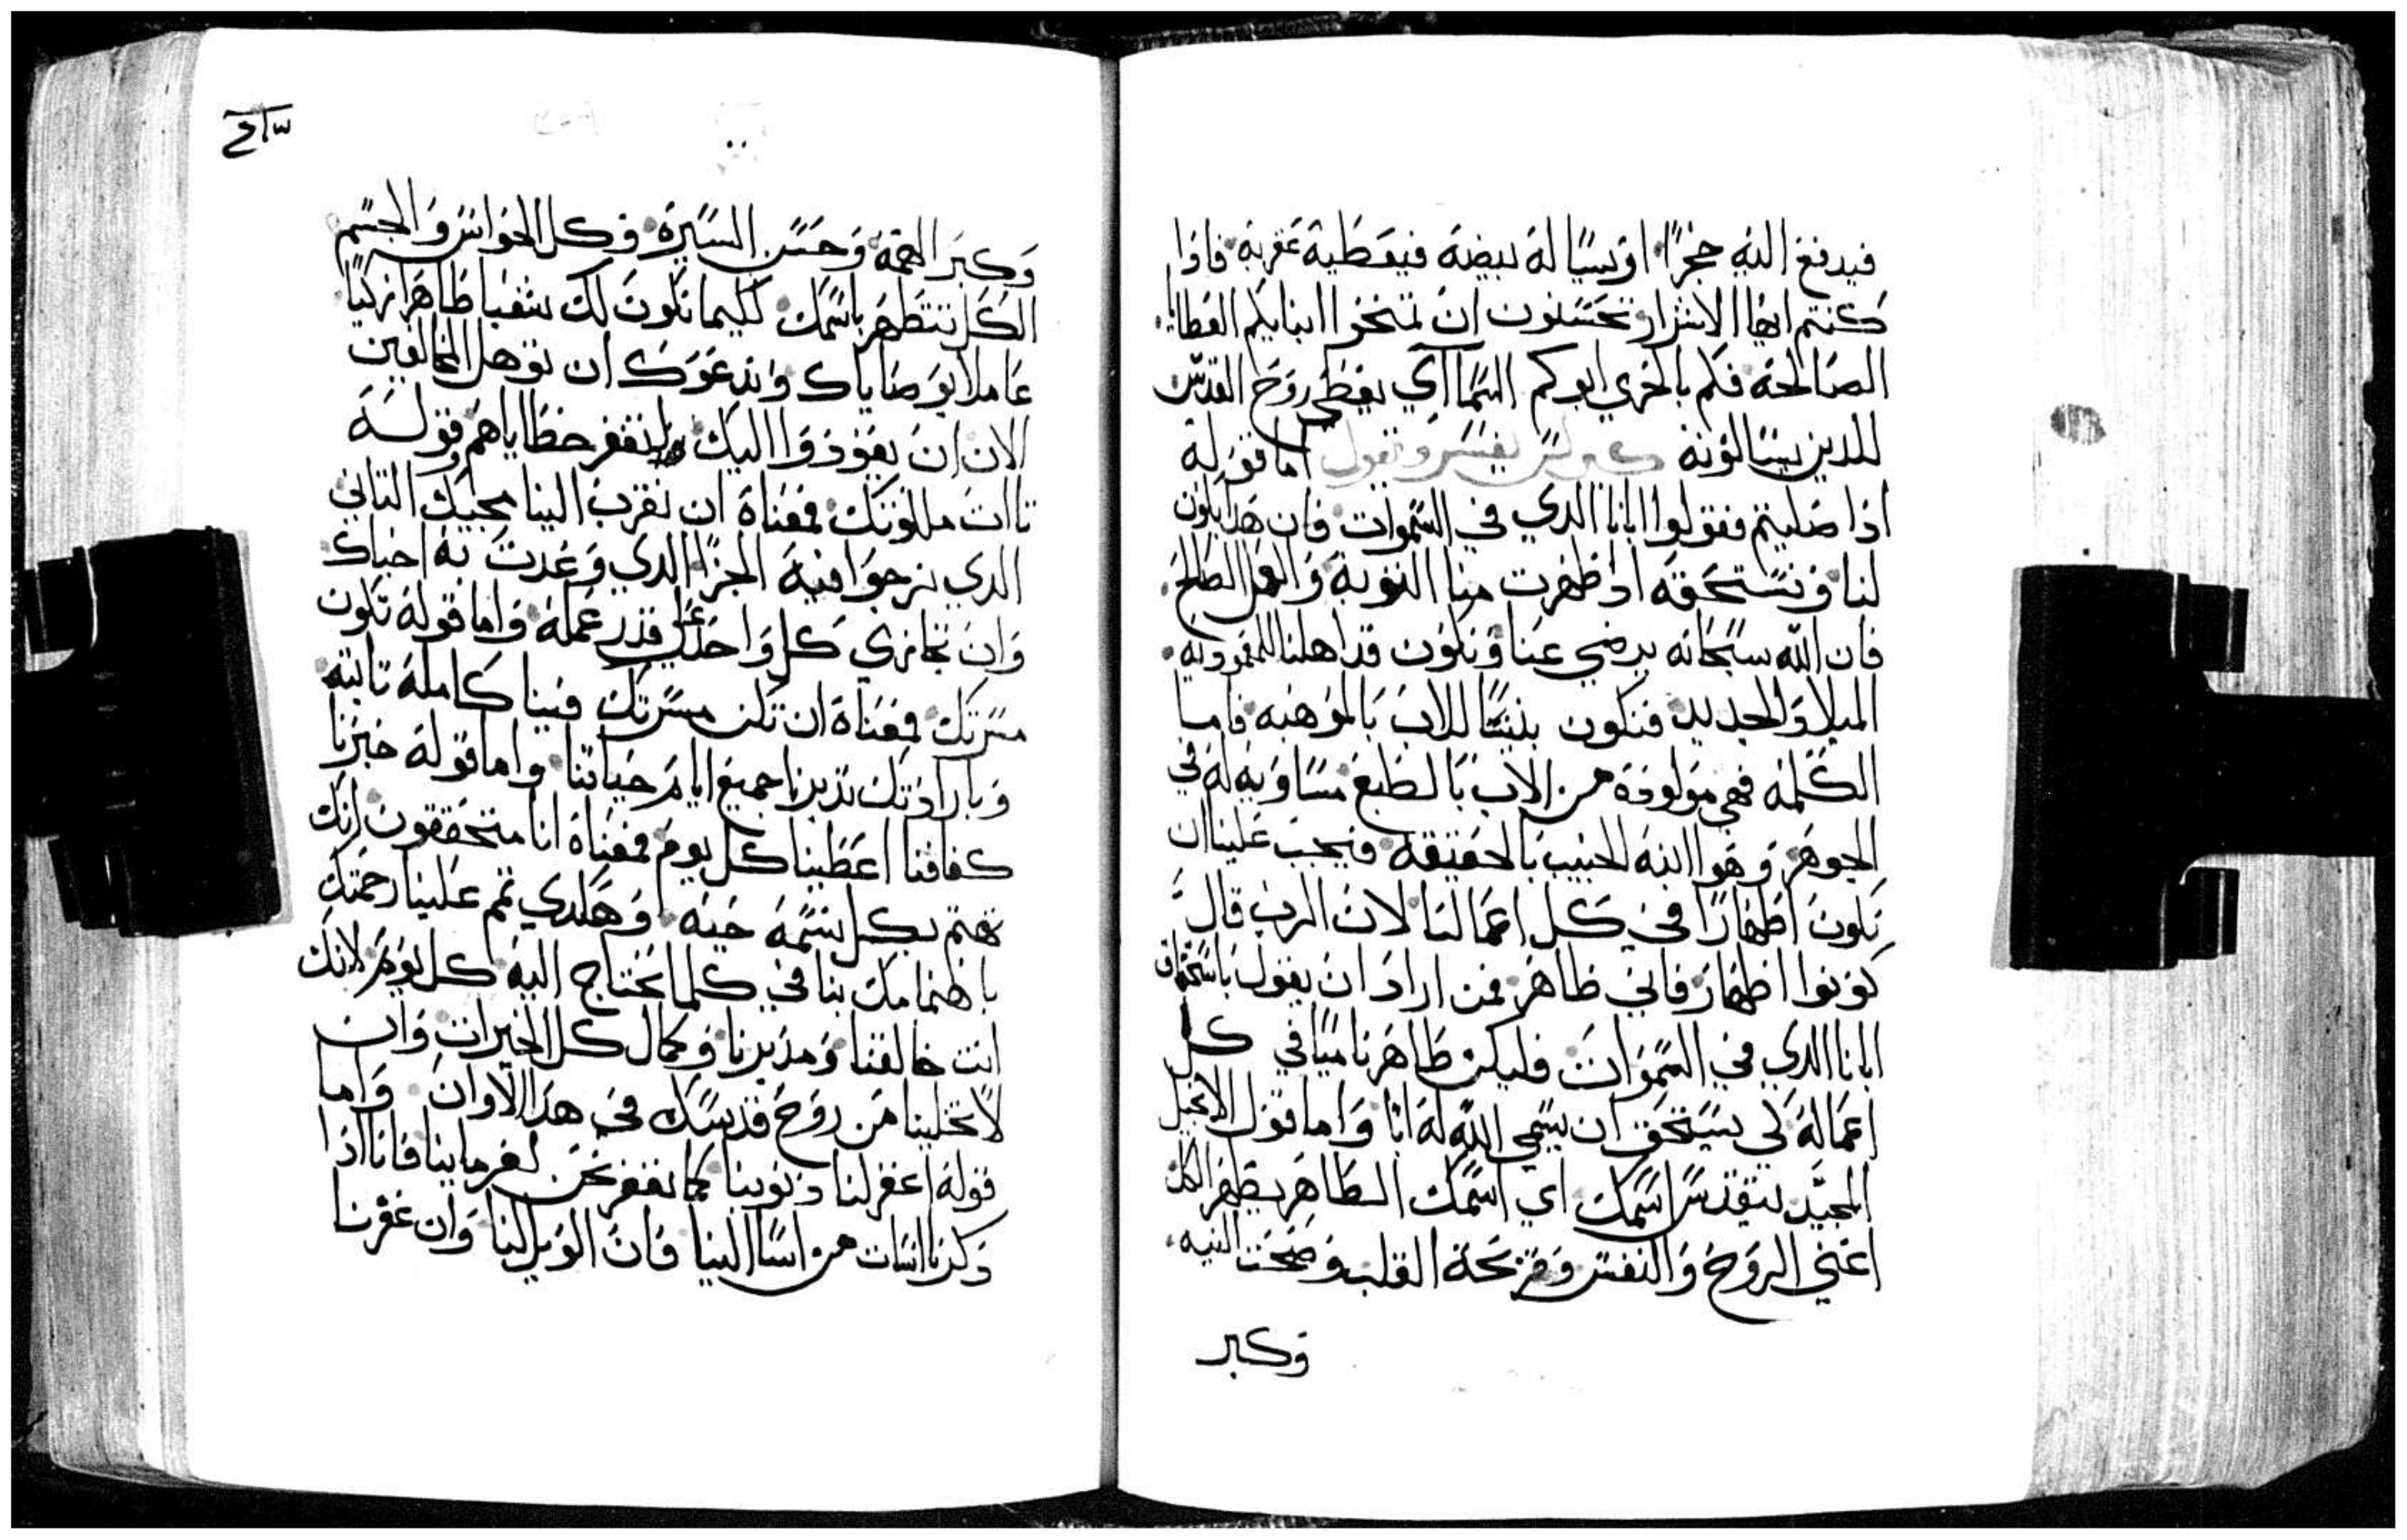 فيدفع اليه حجرًا او يساله بيضه فيعطيه عقربه فاذا
كنتم ايها الاشرار تحسنون ان تمنحوا ابنايكم العطايا
الصالحه فكم بالحري ابوكم السماآي يعطي روح القدس
للدين يسالونه كيرلس يفسر ويقول اما قوله
اذا صليتم فقولوا ابانا الدي في السموات فان هدا يكون
لنا ونستحقه اذ اظهرت منا التوبه والعمل الصالح
فان الله سبحانه يرضي عنا ونكون قد اهلنا للمعموديه
الميلاد الجديد فنكون بنينًا للاب بالموهبه فاما
الكلمه فهي مولوده من الاب بالطبع مساويه له في
الجوهر وهو ابنه الحبيب بالحقيقه فيجب علينا ان
نكون اطهارًا في كل اعمالنا لان الرب قال
كونوا اطهار فاني طاهر فمن اراد ان يقول باستحقاق
ابانا الدي في السموات فليكن طاهر ناميًا في كل
اعماله لكي يستحق ان يسمي الله له ابًا واما قول الانجيل
المجيد يتقدس اسمك اي اسمك الطاهر يطهر الكل
اعني الروح والنفس وقريحة القلب وصحت النيه
وكبر
وكبر الهمه وحسن السيره وكل الحواس والجسم
الكل تتطهر باسمك لكيما نكون لك شعبا طاهرا زكيًا
عاملا بوصاياك وندعوك ان توهل المخالفين
الان ان يعودوا اليك ولتغفر خطاياهم وقوله
تاات ملكوتك فمعناه ان تقرب الينا مجيك التاني
الدي نرجوا فيه الجزا الدي وعدت به احباك
وان تجازي كل واحد علي قدر عمله واما قوله تكون
مسرتك فمعناه ان تكن مسرتك فينا كامله تابته
وبارادتك تدبرنا جميع ايام حياتنا واما قوله خبزنا
كفافنا اعطينا كل يوم فمعناه انا متحققون انك
تهتم بكل نسمه حيه وهكدي تمم علينا رحمتك
باهتمامك بنا في كلما نحتاج اليه كل يوم لانك
انت خالقنا ومدبرنا وكمال كل الخيرات وان
لا تخلينا من روح قدسك في هدا الاوان واما
قوله اغفر لنا دنوبنا كما نغفر نحن لغرماينا فانا اذا
دكرنا اسات من اسا الينا فان الويل لنا وان غفرنا